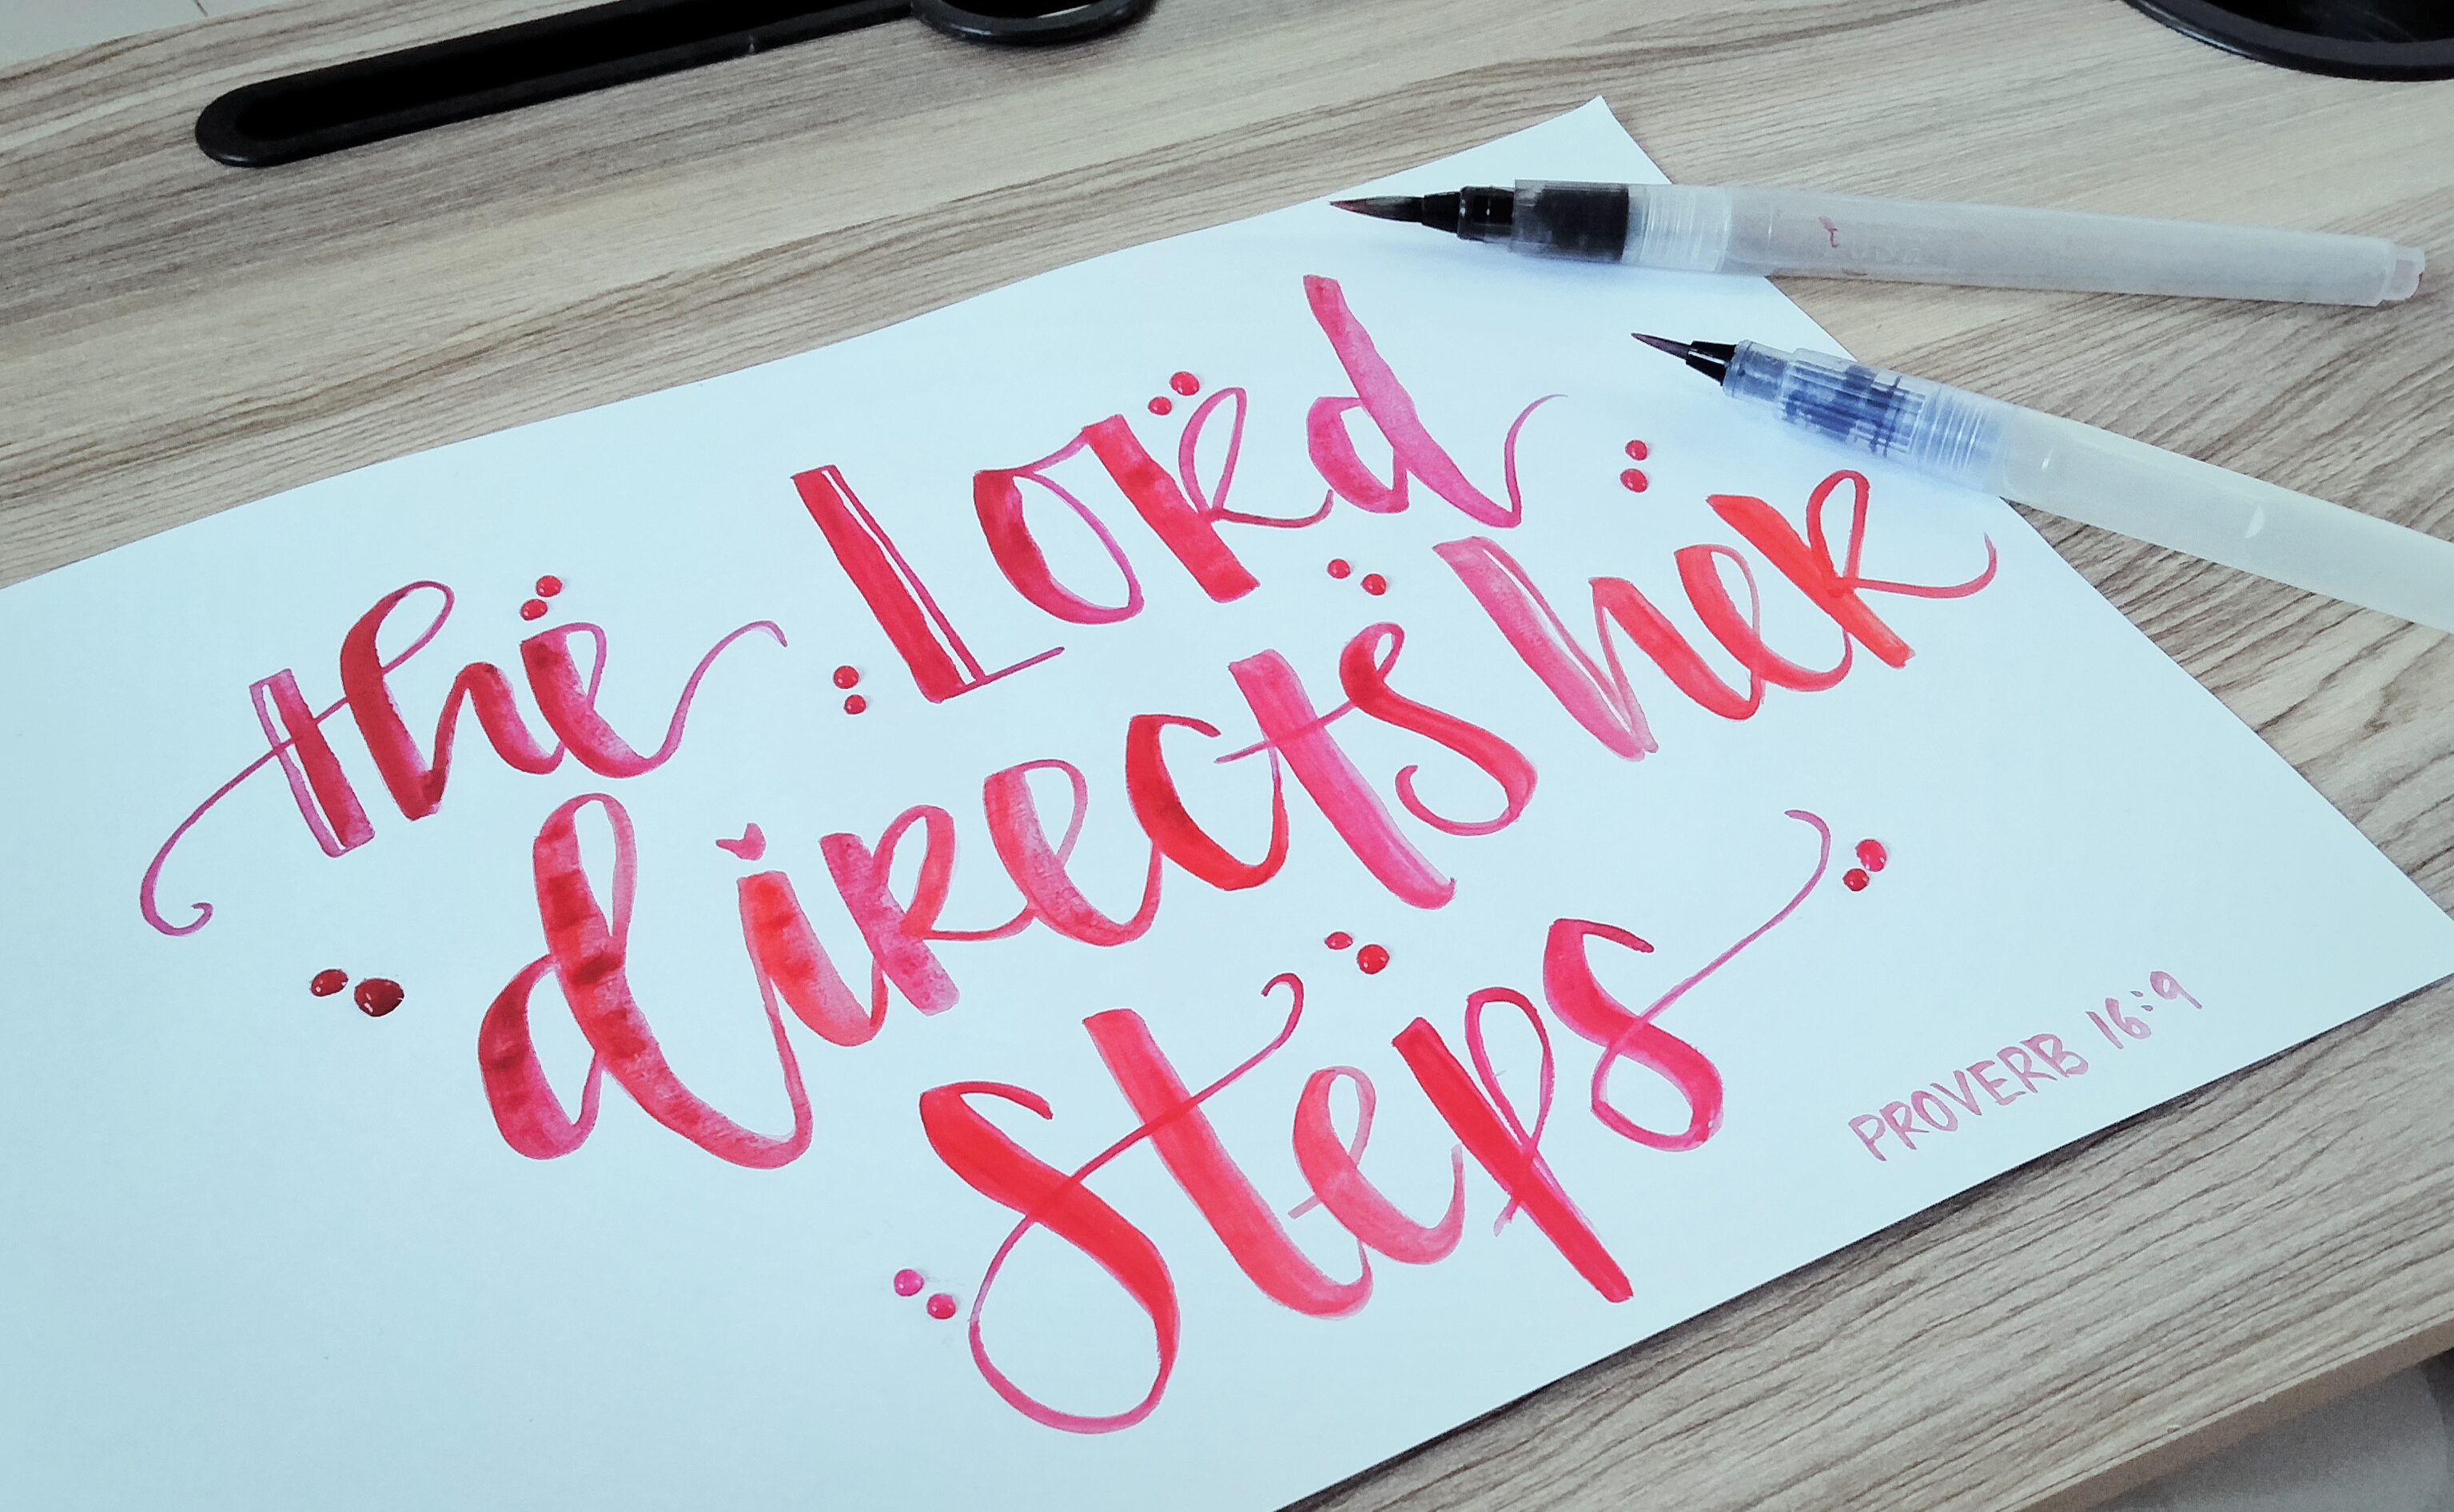 the Lord
directs her
steps
PROVERB 16:9